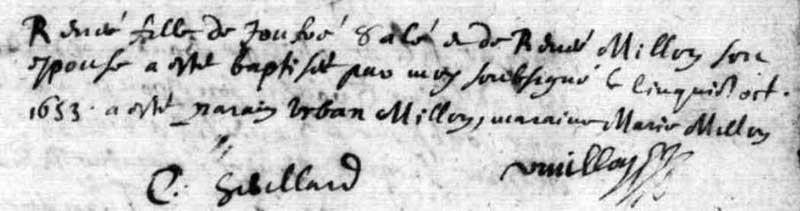 René fille de Joufré Salé & de René Millon son
espouse a esté baptisée par moy soubsigné le cinquies oct.
1653. a esté parain Urban Millon, maraine Marie Millon
C. Gibillard